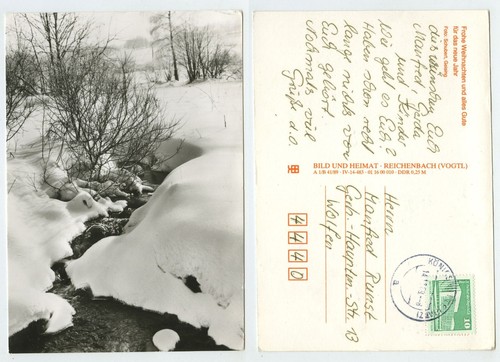 Frohe Weihnachten und alles Gute
für das neue Jahr
Foto: Schubert, Greising
Manfred, Gerda
und Kinder
Wie geht es Euch?
Haben schon recht
lang nichts von
Euch gehört.
Nochmals viel
Grüße d. O.
BILD UND HEIMAT · REICHENBACH (VOGTL)
A 1/B 41/89 · IV-14-483 · 01 16 09 010 · DDR 0,25 M
Herrn
Manfred Kunst
Gerh.-Hauptm.-Str. 13
Wolfen
4440
10